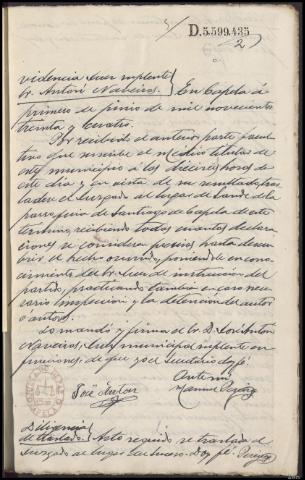 D.5.599.435
2
videncia Juez suplente
Sr. Antón Naveiras. En Capela á
primero de junio de mil novecientos
treinta y cuatro.
Por recibido el anterior parte facul
tivo que suscribe el médico titular de
este municipio á las diecisiete horas de
este día y en vista de su resultado, tras
ládese el Juzgado al lugar de
parroquia de Santiago de Capela de este
término, recibiendo todas cuantas declara
ciones se consideren precisas hasta descu
brir el hecho ocurrido, poniendo en cono
cimiento del Sr. Juez de instrucción del
partido, practicando también en caso nece
sario inspección y la detención del autor
ó autores.
Lo mandó y firma el Sr. D. José Antón
Naveiras, Juez municipal suplente en
funciones, de que yo el Secretario doy fé.
José Antón
Ante mi
Manuel
Diligencia
de traslado. Acto seguido se traslada el
Juzgado al lugar Doy fé.